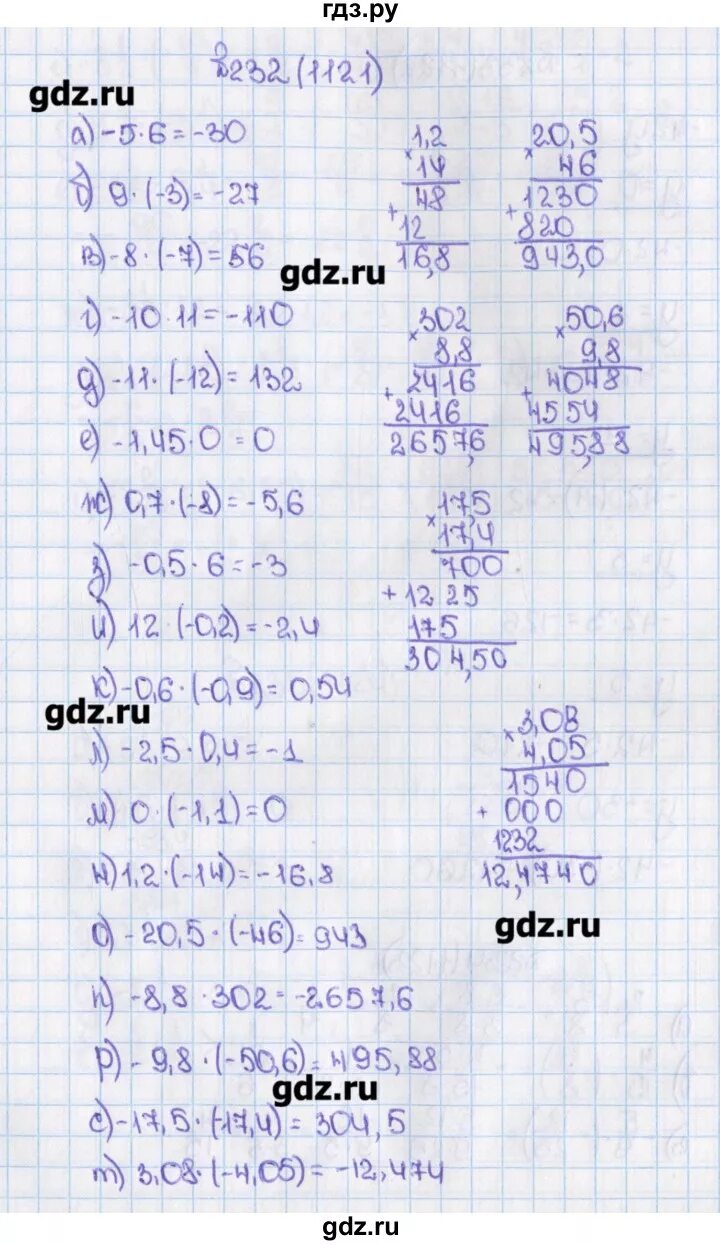 гдз.ру
№232(1121)
gdz.ru
а) -5·6=-30
б) 9·(-3)=-27
в) -8·(-7)=56
gdz.ru
г) -10·11=-110
д) -11·(-12)=132
е) -1,45·0=0
ж) 0,7·(-8)=-5,6
з) -0,5·6=-3
и) 12·(-0,2)=-2,4
к) -0,6·(-0,9)=0,54
gdz.ru
л) -2,5·0,4=-1
м) 0·(-1,1)=0
н) 1,2·(-14)=-16,8
о) -20,5·(-46)=943
п) -8,8·302=-2657,6
р) -9,8·(-50,6)=495,88
gdz.ru
с) -17,5·(-17,4)=304,5
т) 3,08·(-4,05)=-12,474
1,2
×
14
48
+
12
16,8
20,5
×
46
1230
+
820
943,0
302
×
8,8
2416
+
2416
2657,6
50,6
×
9,8
4048
+
4554
495,88
17,5
×
17,4
700
+ 1225
175
304,50
3,08
×
4,05
1540
+ 000
1232
12,4740
gdz.ru
gdz.ru